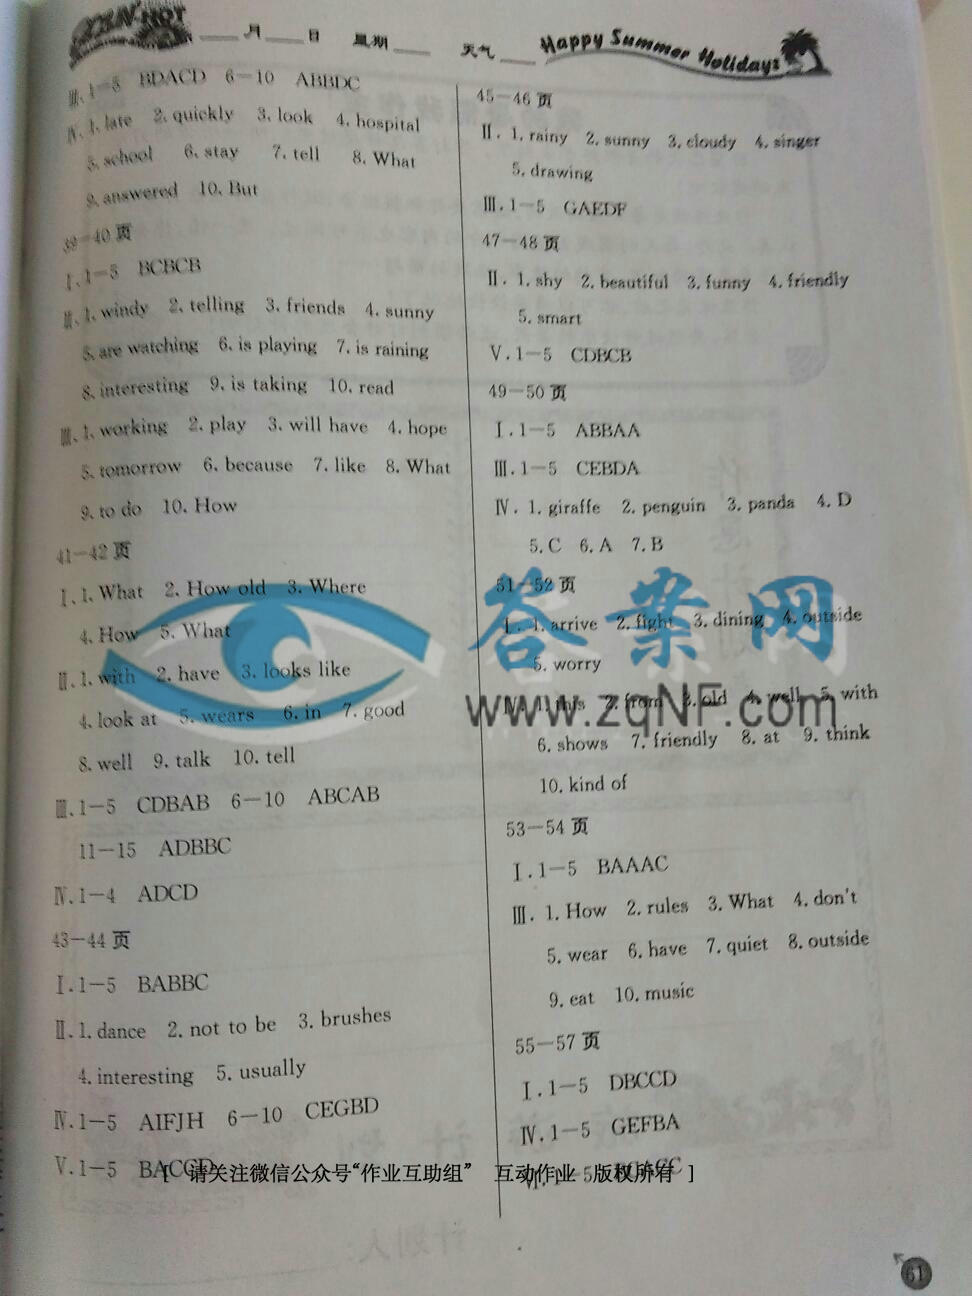 月 日 星期 天气
Happy Summer Holidays
Ⅲ. 1—5 BDACD 6—10 ABBDC
Ⅳ. 1. late 2. quickly 3. look 4. hospital
5. school 6. stay 7. tell 8. What
9. answered 10. But
39—40页
Ⅰ. 1—5 BCBCB
Ⅱ. 1. windy 2. telling 3. friends 4. sunny
5. are watching 6. is playing 7. is raining
8. interesting 9. is taking 10. read
Ⅲ. 1. working 2. play 3. will have 4. hope
5. tomorrow 6. because 7. like 8. What
9. to do 10. How
41—42页
Ⅰ. 1. What 2. How old 3. Where
4. How 5. What
Ⅱ. 1. with 2. have 3. looks like
4. look at 5. wears 6. in 7. good
8. well 9. talk 10. tell
Ⅲ. 1—5 CDBAB 6—10 ABCAB
11—15 ADBBC
Ⅳ. 1—4 ADCD
43—44页
Ⅰ. 1—5 BABBC
Ⅱ. 1. dance 2. not to be 3. brushes
4. interesting 5. usually
Ⅳ. 1—5 AIFJH 6—10 CEGBD
Ⅴ. 1—5
45—46页
Ⅱ. 1. rainy 2. sunny 3. cloudy 4. singer
5. drawing
Ⅲ. 1—5 GAEDF
47—48页
Ⅱ. 1. shy 2. beautiful 3. funny 4. friendly
5. smart
Ⅴ. 1—5 CDBCB
49—50页
Ⅰ. 1—5 ABBAA
Ⅲ. 1—5 CEBDA
Ⅳ. 1. giraffe 2. penguin 3. panda 4. D
5. C 6. A 7. B
51—52页
Ⅰ. 1. arrive 2. fight 3. dining 4. outside
5. worry
Ⅳ. 1. this 2. from 3. old 4. well 5. with
6. shows 7. friendly 8. at 9. think
10. kind of
53—54页
Ⅰ. 1—5 BAAAC
Ⅲ. 1. How 2. rules 3. What 4. don't
5. wear 6. have 7. quiet 8. outside
9. eat 10. music
55—57页
Ⅰ. 1—5 DBCCD
Ⅳ. 1—5 GEFBA
Ⅵ. 1—5
答案网
www.zqNF.com
[ 请关注微信公众号“作业互助组” 互动作业 版权所有 ]
61